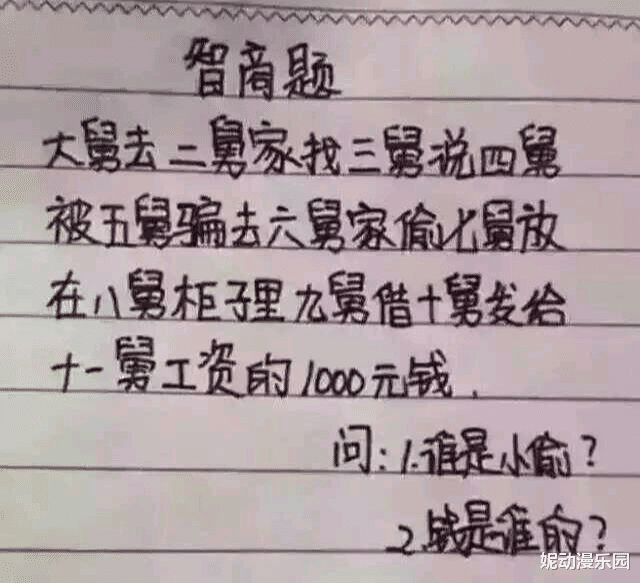 智商题
大舅去二舅家找三舅说四舅
被五舅骗去六舅家偷七舅放
在八舅柜子里九舅借十舅发给
十一舅工资的1000元钱.
问:1.谁是小偷?
2.钱是谁的?
妮动漫乐园